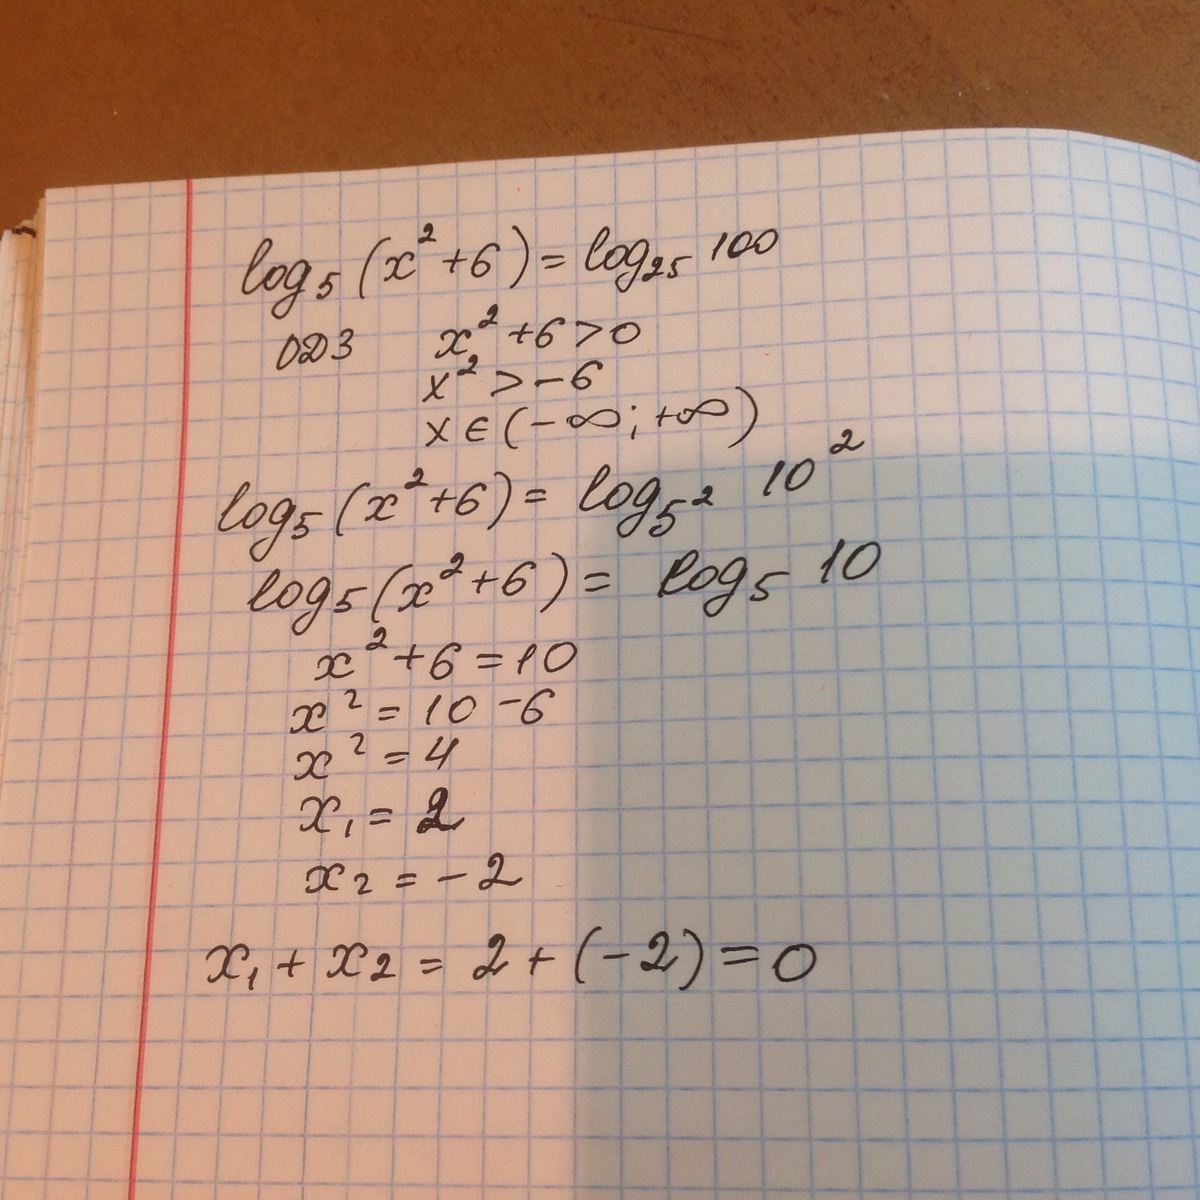 log₅(x²+6) = log₂₅ 100
ОДЗ x²+6>0
x²>-6
x∈(-∞;+∞)
log₅(x²+6) = log₅² 10²
log₅(x²+6) = log₅ 10
x²+6=10
x²=10-6
x²=4
x₁=2
x₂=-2
x₁+x₂=2+(-2)=0